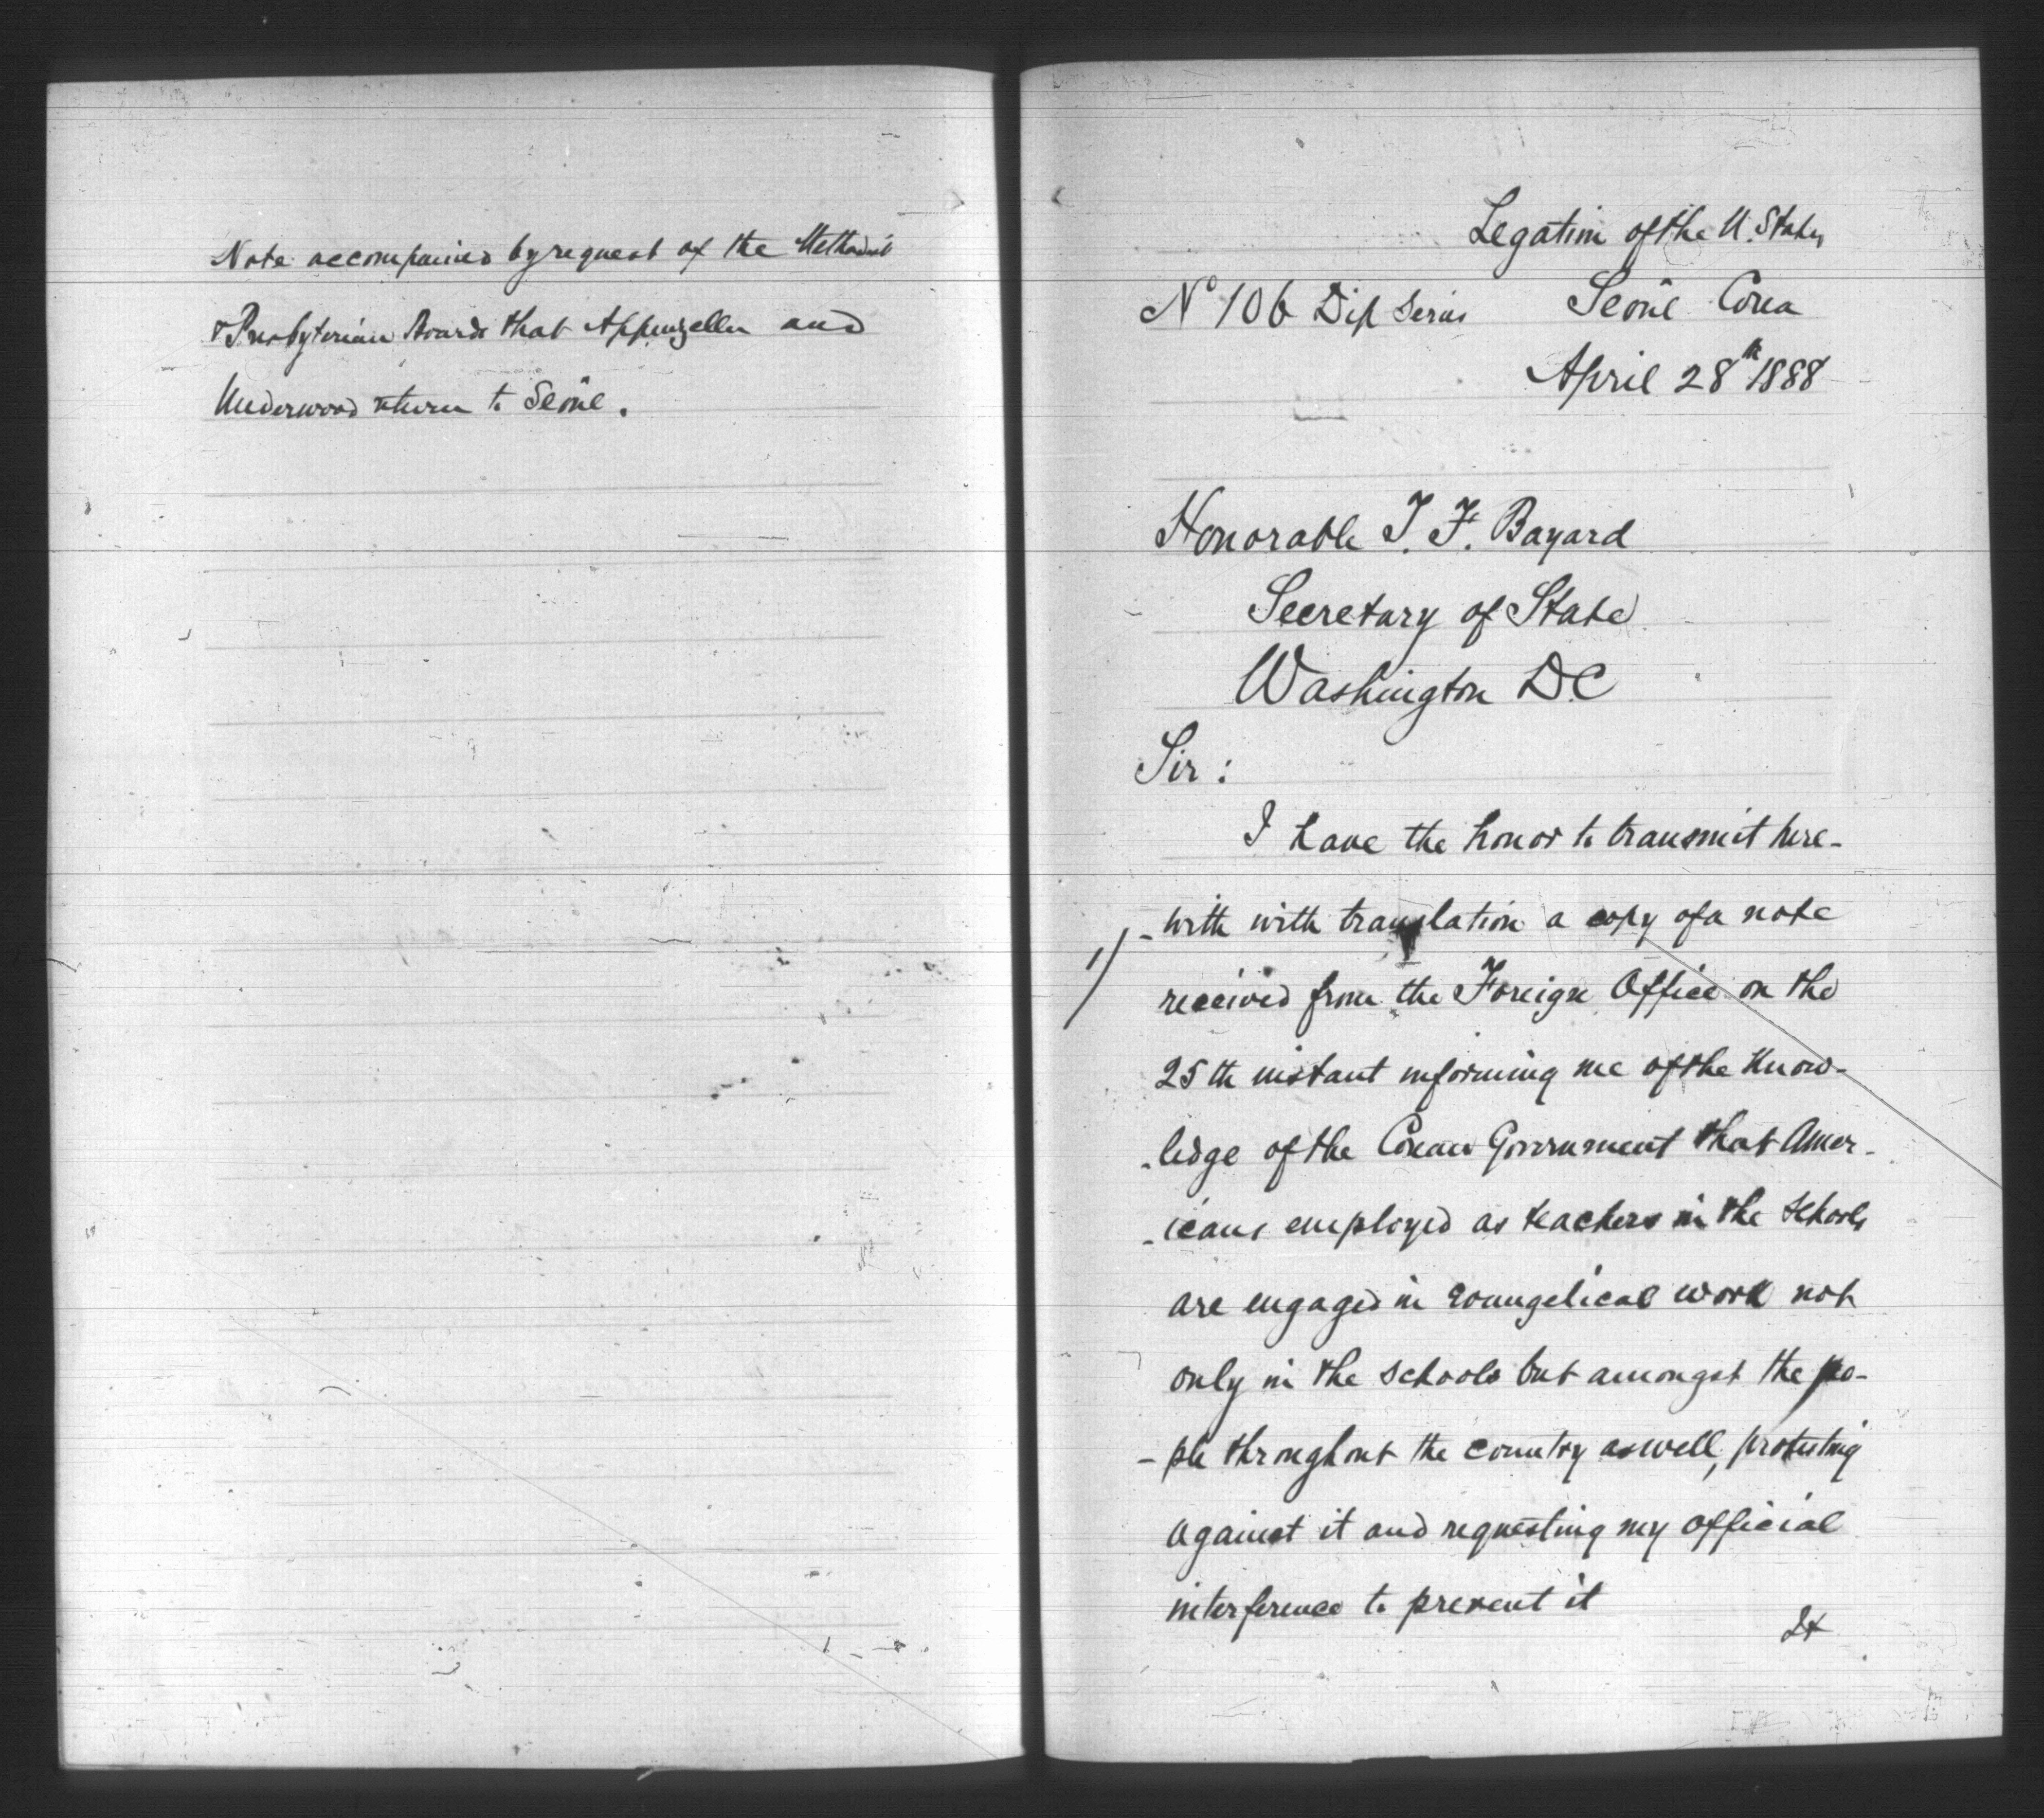 Note accompanied by request of the Methodist
& Presbyterian Boards that Appenzeller and
Underwood return to Seoul.
Legation of the U. States
No 106 Dip Series Seoul Corea
April 28th 1888
Honorable T. F. Bayard
Secretary of State
Washington D.C
Sir :
I have the honor to transmit here-
-with with translation a copy of a note
1/
received from the Foreign Office on the
25th instant informing me of the Know-
-ledge of the Corean Government that Amer-
-icans employed as teachers in the schools
are engaged in evangelical work not
only in the schools but amongst the peo-
-ple throughout the country as well, protesting
against it and requesting my official
interference to prevent it
It